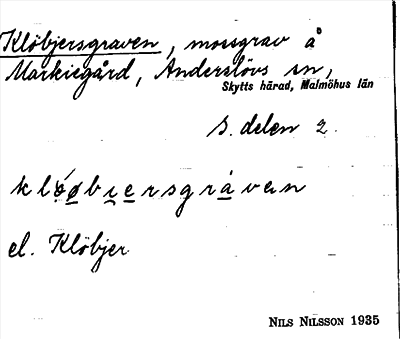 Klöbjersgraven, mossgrav å
Markiegård, Anderslövs sn,
Skytts härad, Malmöhus län
S. delen 2.
kløøbi̯ersgravan
el. Klöbjer
NILS NILSSON 1935